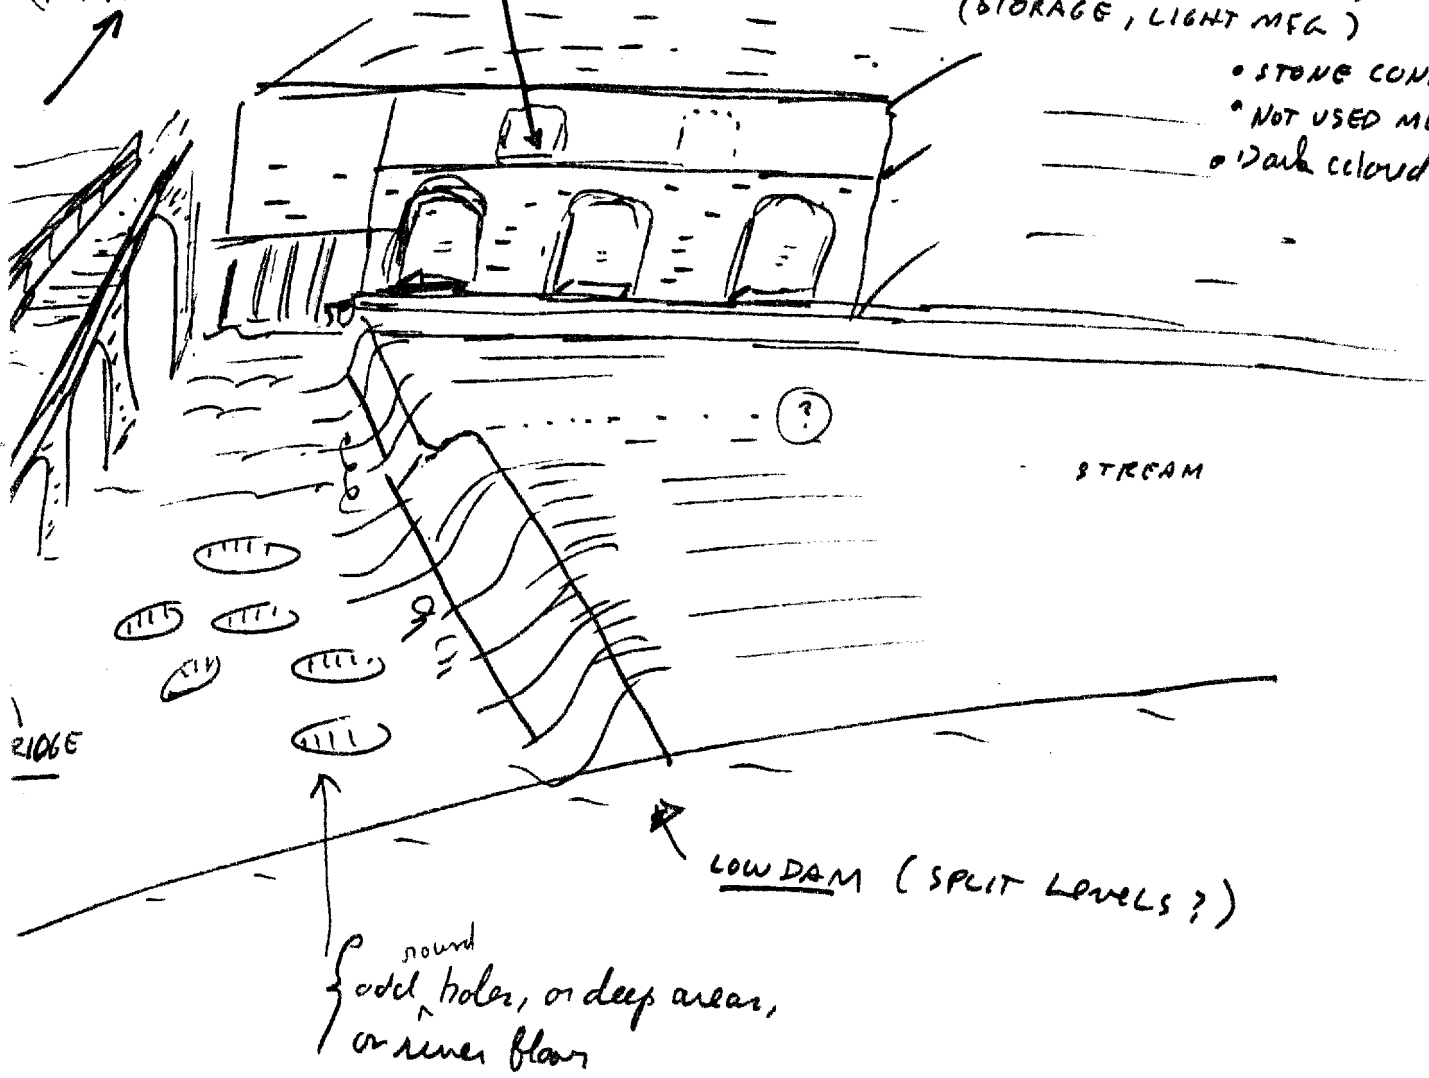 (STORAGE, LIGHT MFG)
• STONE CON
• NOT USED
• Dark
?
STREAM
RIDGE
LOW DAM (SPLIT LEVELS?)
round
odd holes, or deep areas,
on river floor